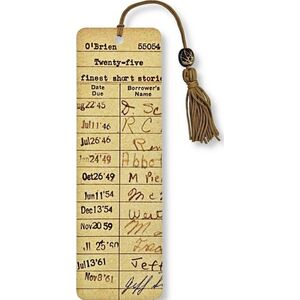 O'Brien 55054
Twenty-five
finest short stories
Date Due Borrower's Name
Aug 22'45 D Sc
Jul 11'46 R C
Jul 26'46
Jan 24'49 Abbot
Oct 26'49 M Pie
Jun 11'54 Mc
Dec 13'54 West
Nov 20 59 M
Jl 25'60 Fred
Jul 13'61 Jeff
Nov 8'61 Jeff